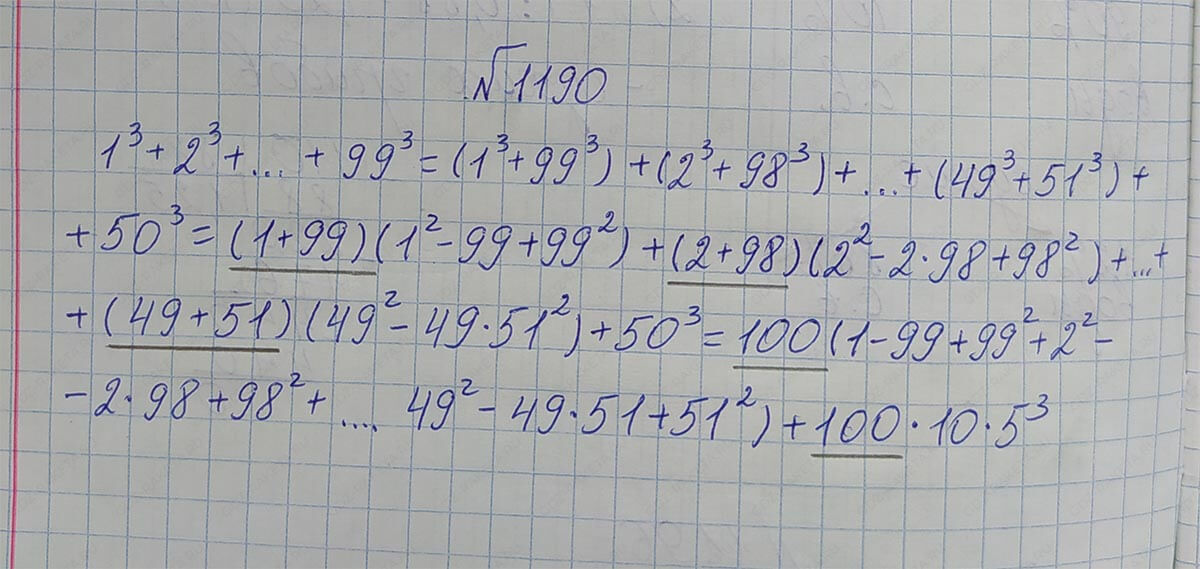 №1190
1³+2³+...+99³=(1³+99³)+(2³+98³)+...+(49³+51³)+
+50³=(1+99)(1²-99+99²)+(2+98)(2²-2·98+98²)+...+
+(49+51)(49²-49·51²)+50³=100(1-99+99²+2²-
-2·98+98²+.... 49²-49·51+51²)+100·10·5³